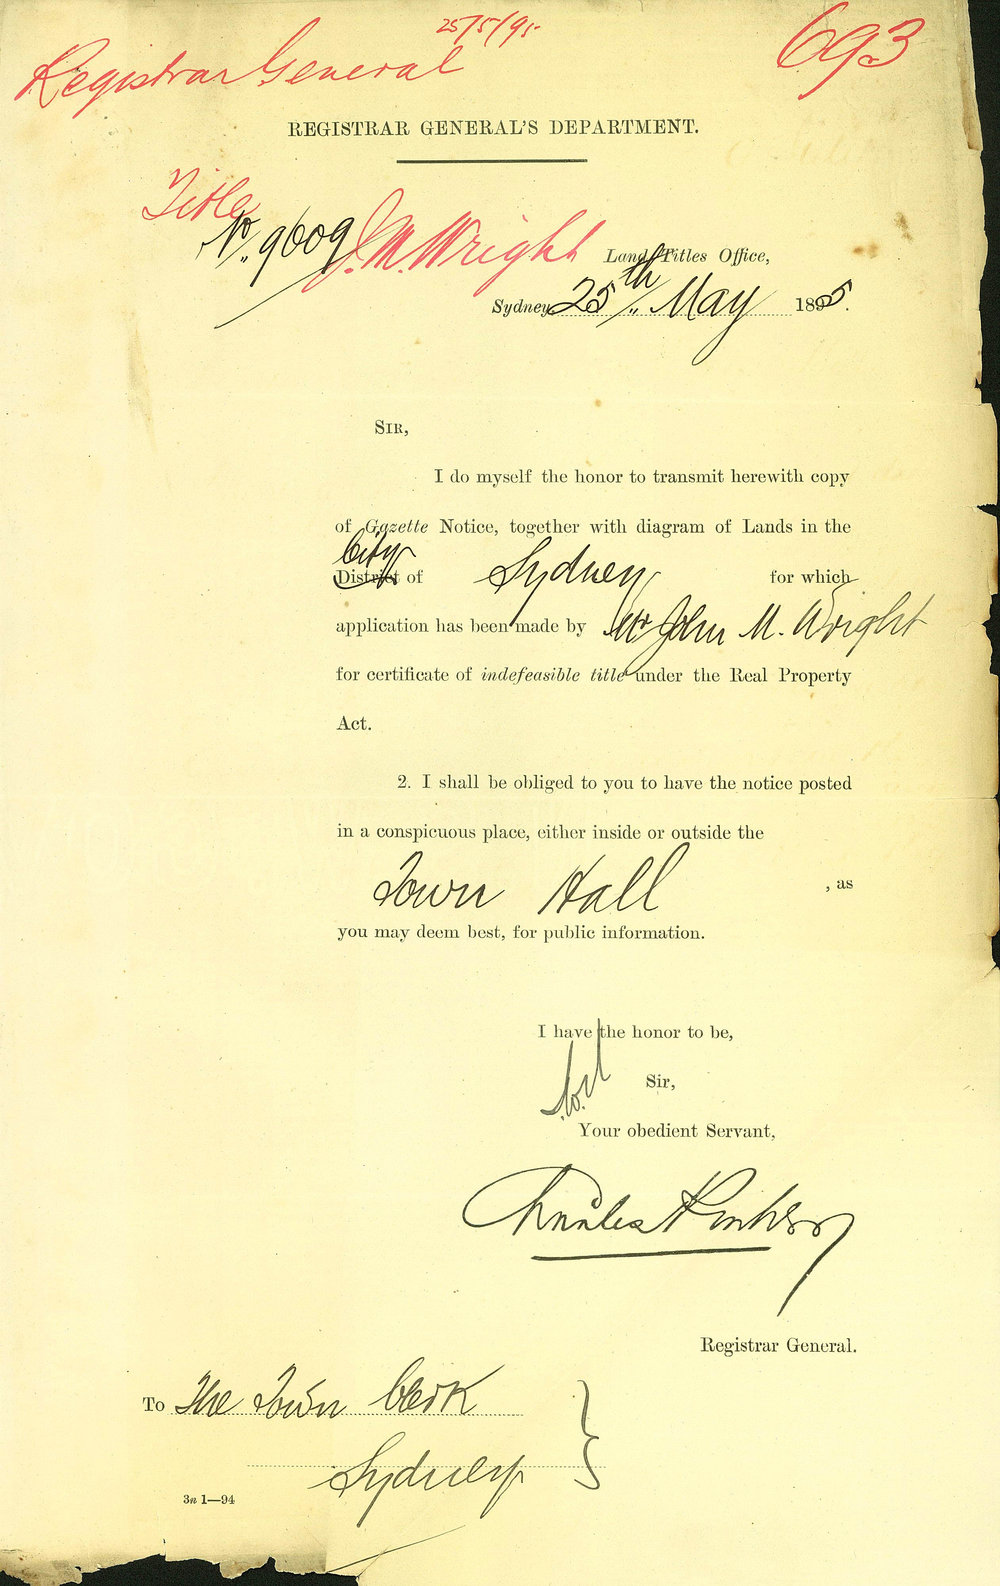 25/5/95
Registrar General
693
REGISTRAR GENERAL'S DEPARTMENT.
Title
No. 9609
J. M. Wright
Land Titles Office,
Sydney 25th May 1895.
SIR,
I do myself the honor to transmit herewith copy
of Gazette Notice, together with diagram of Lands in the
City
District of Sydney for which
application has been made by Mr John M. Wright
for certificate of indefeasible title under the Real Property
Act.
2. I shall be obliged to you to have the notice posted
in a conspicuous place, either inside or outside the
Town Hall , as
you may deem best, for public information.
I have the honor to be,
Sir,
Your obedient Servant,
Charles
Registrar General.
To The Town Clerk
Sydney
3n 1—94